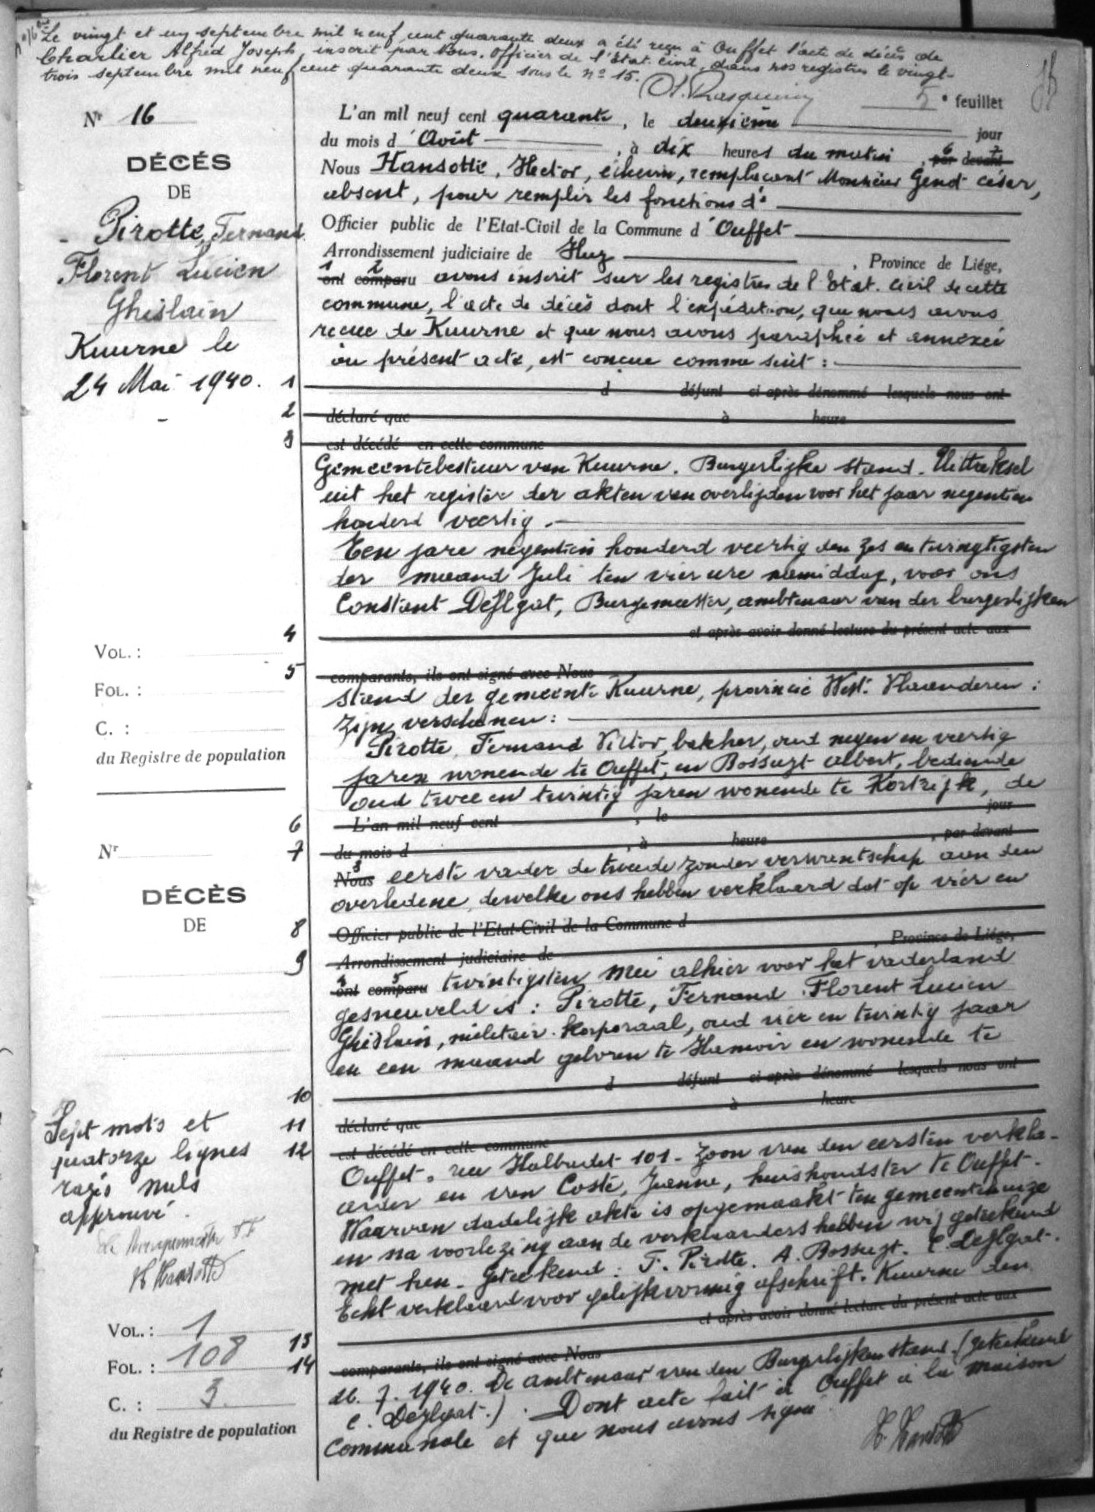 Le vingt et un septembre mil neuf cent quarante deux a été reçu à Ouffet l'acte de décès de
Charlier Alfred Joseph, inscrit par Nous, officier de l'Etat civil, dans nos registres le vingt-
trois septembre mil neuf cent quarante deux sous le n° 15.
5e feuillet
Nr 16
DÉCÉS
DE
Pirotte, Fernand
Florent Lucien
Ghislain
Kuurne le
24 Mai 1940.
L'an mil neuf cent quarante, le deuxième jour
du mois d'Août, à dix heures du matin, 6 par devant 7
Nous Hansotte, Hector, échevin, remplaçant Monsieur Genot César,
absent, pour remplir les fonctions d'
Officier public de l'Etat-Civil de la Commune d'Ouffet
Arrondissement judiciaire de Huy, Province de Liége,
1 ont 2 comparu avons inscrit sur les registres de l'Etat. Civil de cette
commune, l'acte de décès dont l'expédition, que nous avons
reçue de Kuurne et que nous avons paraphée et annexée
au présent acte, est conçue comme suit :
1 d défunt ci après dénommé lesquels nous ont
2 déclaré que à heure
3 est décédé en cette commune
Gemeentebestuur van Kuurne. Burgerlijke stand. Uittreksel
uit het register der akten van overlijden voor het jaar negentien
honderd veertig.
Ten jare negentien honderd veertig den zes en twingtigsten
der maand Juli ten vier ure namiddag, voor ons
Constant Deflgat, Burgemeester, ambtenaar van der burgerlijken
4 et après avoir donné lecture du présent acte aux
VOL. :
5 comparants, ils ont signé avec Nous
FOL. :
stand der gemeente Kuurne, provincie West. Vlaanderen :
C. :
zijn verschenen :
du Registre de population
Pirotte, Fernand Victor, bakker, oud negen en veertig
jaren wonende te Ouffet, en Bossuyt Albert, bediende
oud twee en twintig jaren wonende te Kortrijk, de
6 L'an mil neuf cent , le jour
Nr
7 du mois d , à heure , par devant
3 Nous eerste vader de tweede zonder verwantschap aan den
DÉCÈS
overledene, dewelke ons hebben verklaard dat op vier en
DE
8 Officier public de l'Etat-Civil de la Commune d
9 Arrondissement judiciaire de , Province de Liége,
4 ont 5 comparu twintigsten Mei alhier voor het vaderland
gesneuveld is : Pirotte, Fernand Florent Lucien
Ghislain, militair korporaal, oud vier en twintig jaar
en een maand geboren te Hamoir en wonende te
10 d défunt ci après dénommé lesquels nous ont
11 déclaré que à heure
12 est décédé en cette commune
Sept mots et
quatorze lignes
rayés nuls
approuvé.
H Hansotte
Ouffet. rue Halbadet 101 - Zoon van den eersten verkla-
arder en van Coste, Jeanne, huishoudster te Ouffet.
Waarvan dadelijk akte is opgemaakt ten gemeentehuize
en na voorlezing aan de verklaarders hebben wij getekend
met hen. Geteekend : F. Pirotte. A. Bossuyt. C. Deflgat.
Echt verklaard voor gelijkvormig afschrift. Kuurne den
VOL. : 1
13 et après avoir donné lecture du présent acte aux
FOL. : 108
14 comparants, ils ont signé avec Nous
C. : 3.
du Registre de population
26. 7. 1940. De ambtenaar van den Burgerlijken stand. (getekend
C. Deflgat.). Dont acte fait à Ouffet à la maison
Communale et que nous avons signé.
H. Hansotte